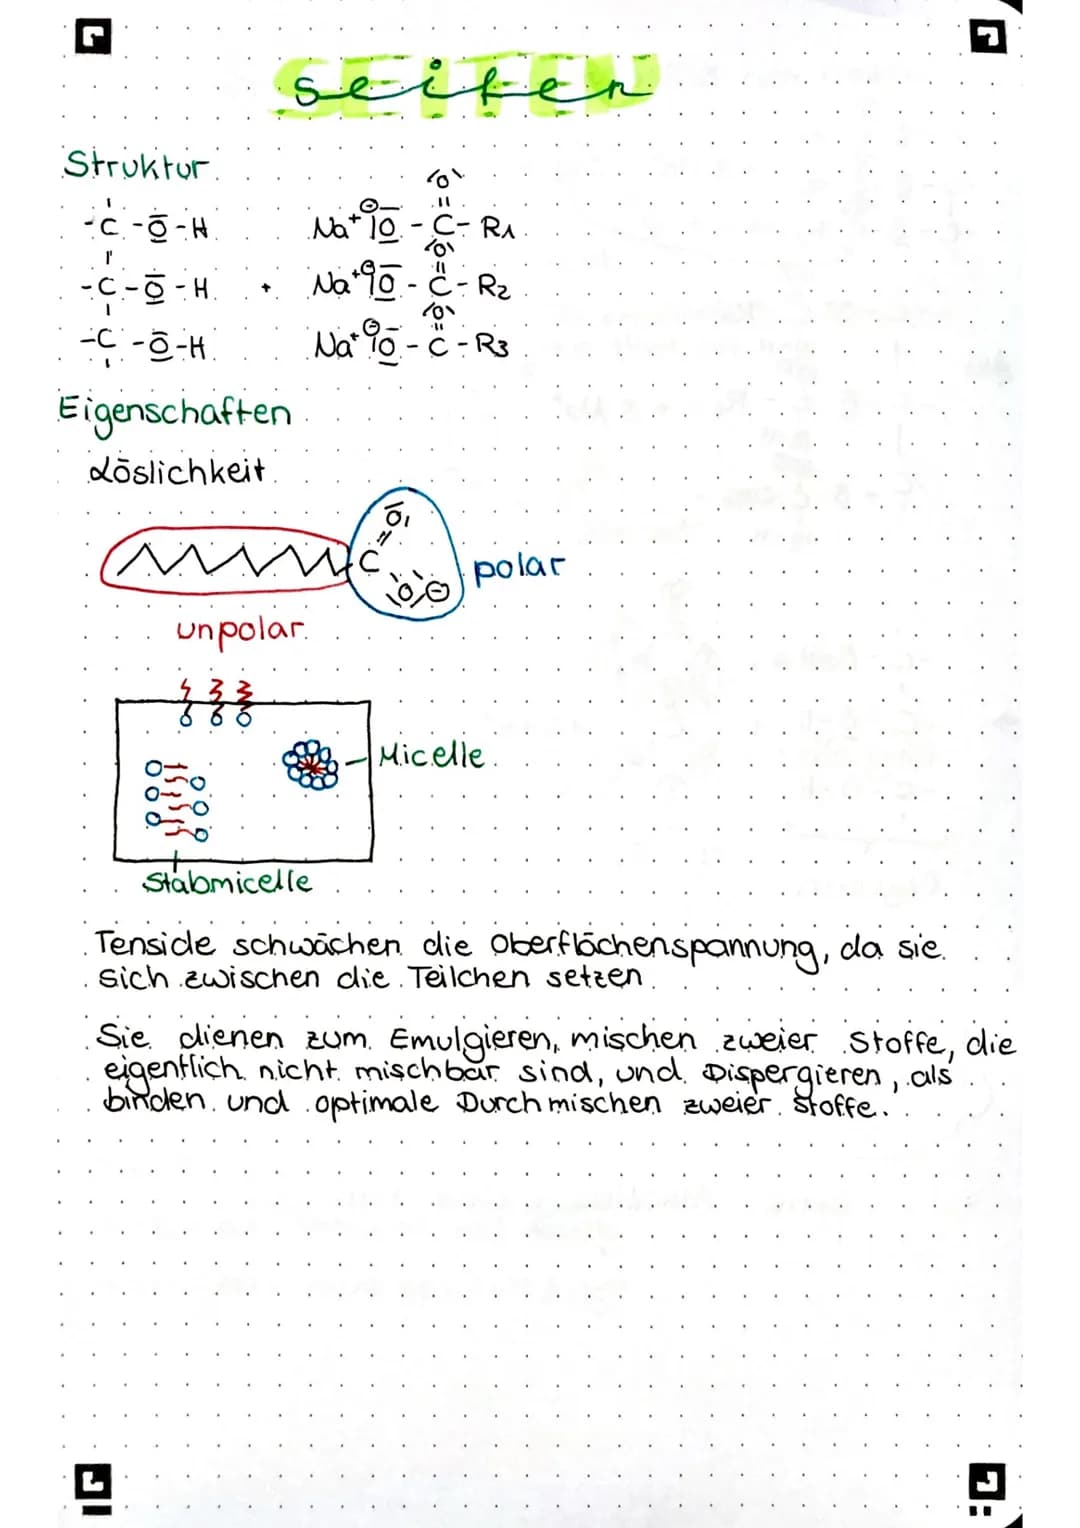 Seifen
Struktur
-C-O-H Na⁺ ⊖|O-C-R1
-C-O-H + Na⁺ ⊖|O-C-R2
-C-O-H Na⁺ ⊖|O-C-R3
Eigenschaften
Löslichkeit
polar
unpolar
Micelle
Stabmicelle
Tenside schwächen die Oberflächenspannung, da sie
sich zwischen die Teilchen setzen
Sie dienen zum Emulgieren, mischen zweier Stoffe, die
eigentlich nicht mischbar sind, und Dispergieren, als
binden und optimale Durchmischen zweier Stoffe.